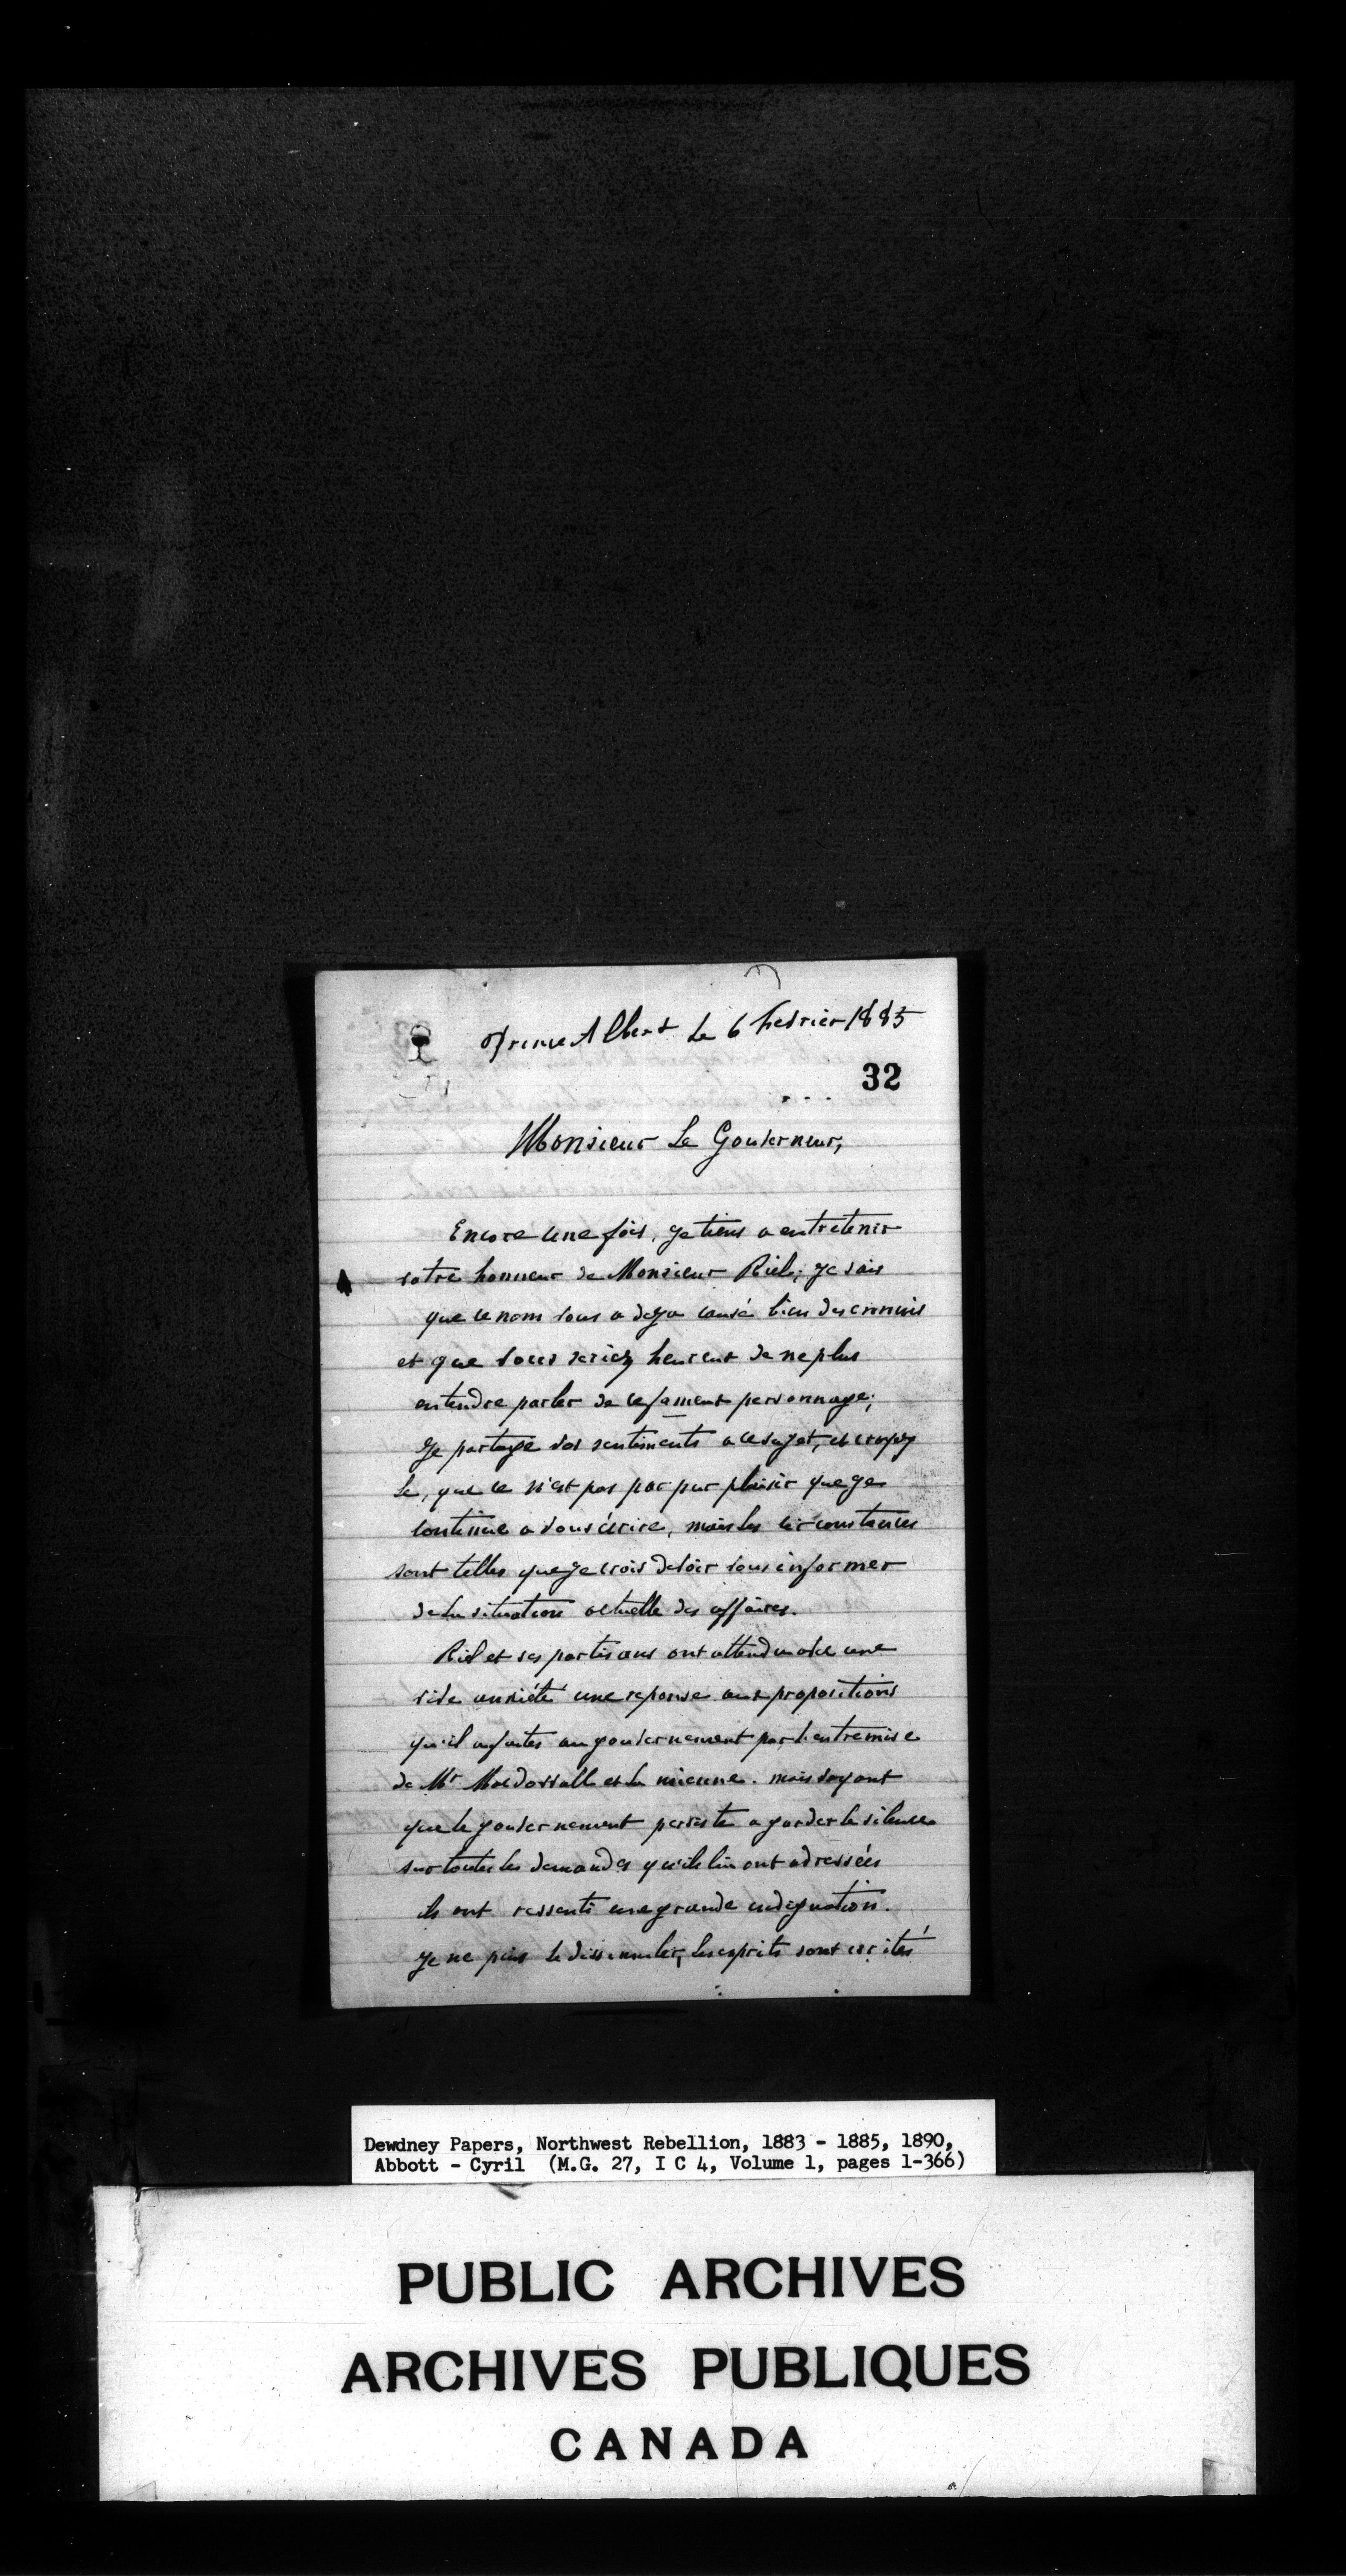 Prince Albert Le 6 Fevrier 1885
32
Monsieur Le Gouverneur,
Encore une fois, je tiens a entretenir
votre honneur de Monsieur Riel; je sais
que ce nom vous a deja causé bien des ennuis
et que vous seriez heureux de ne plus
entendre parler de ce fameux personnage;
Je partage vos sentiments a ce sujet, et croyez
le, que ce n'est pas par pur plaisir que je
continue a vous écrire, mais les circonstances
sont telles que je crois devoir vous informer
de la situation actuelle des affaires.
Riel et ses partisans ont attendu avec une
vive anxiété une reponse aux propositions
qu'il a faites au gouvernement par l'entremise
de Mr Macdowall et la mienne. mais voyant
que le gouvernement persiste a garder le silence
sur toutes les demandes qu'ils lui ont adressées
ils ont ressenti une grande indignation.
Je ne puis le dissimuler, les esprits sont irrités
Dewdney Papers, Northwest Rebellion, 1883 - 1885, 1890,
Abbott - Cyril (M.G. 27, I C 4, Volume 1, pages 1-366)
PUBLIC ARCHIVES
ARCHIVES PUBLIQUES
CANADA